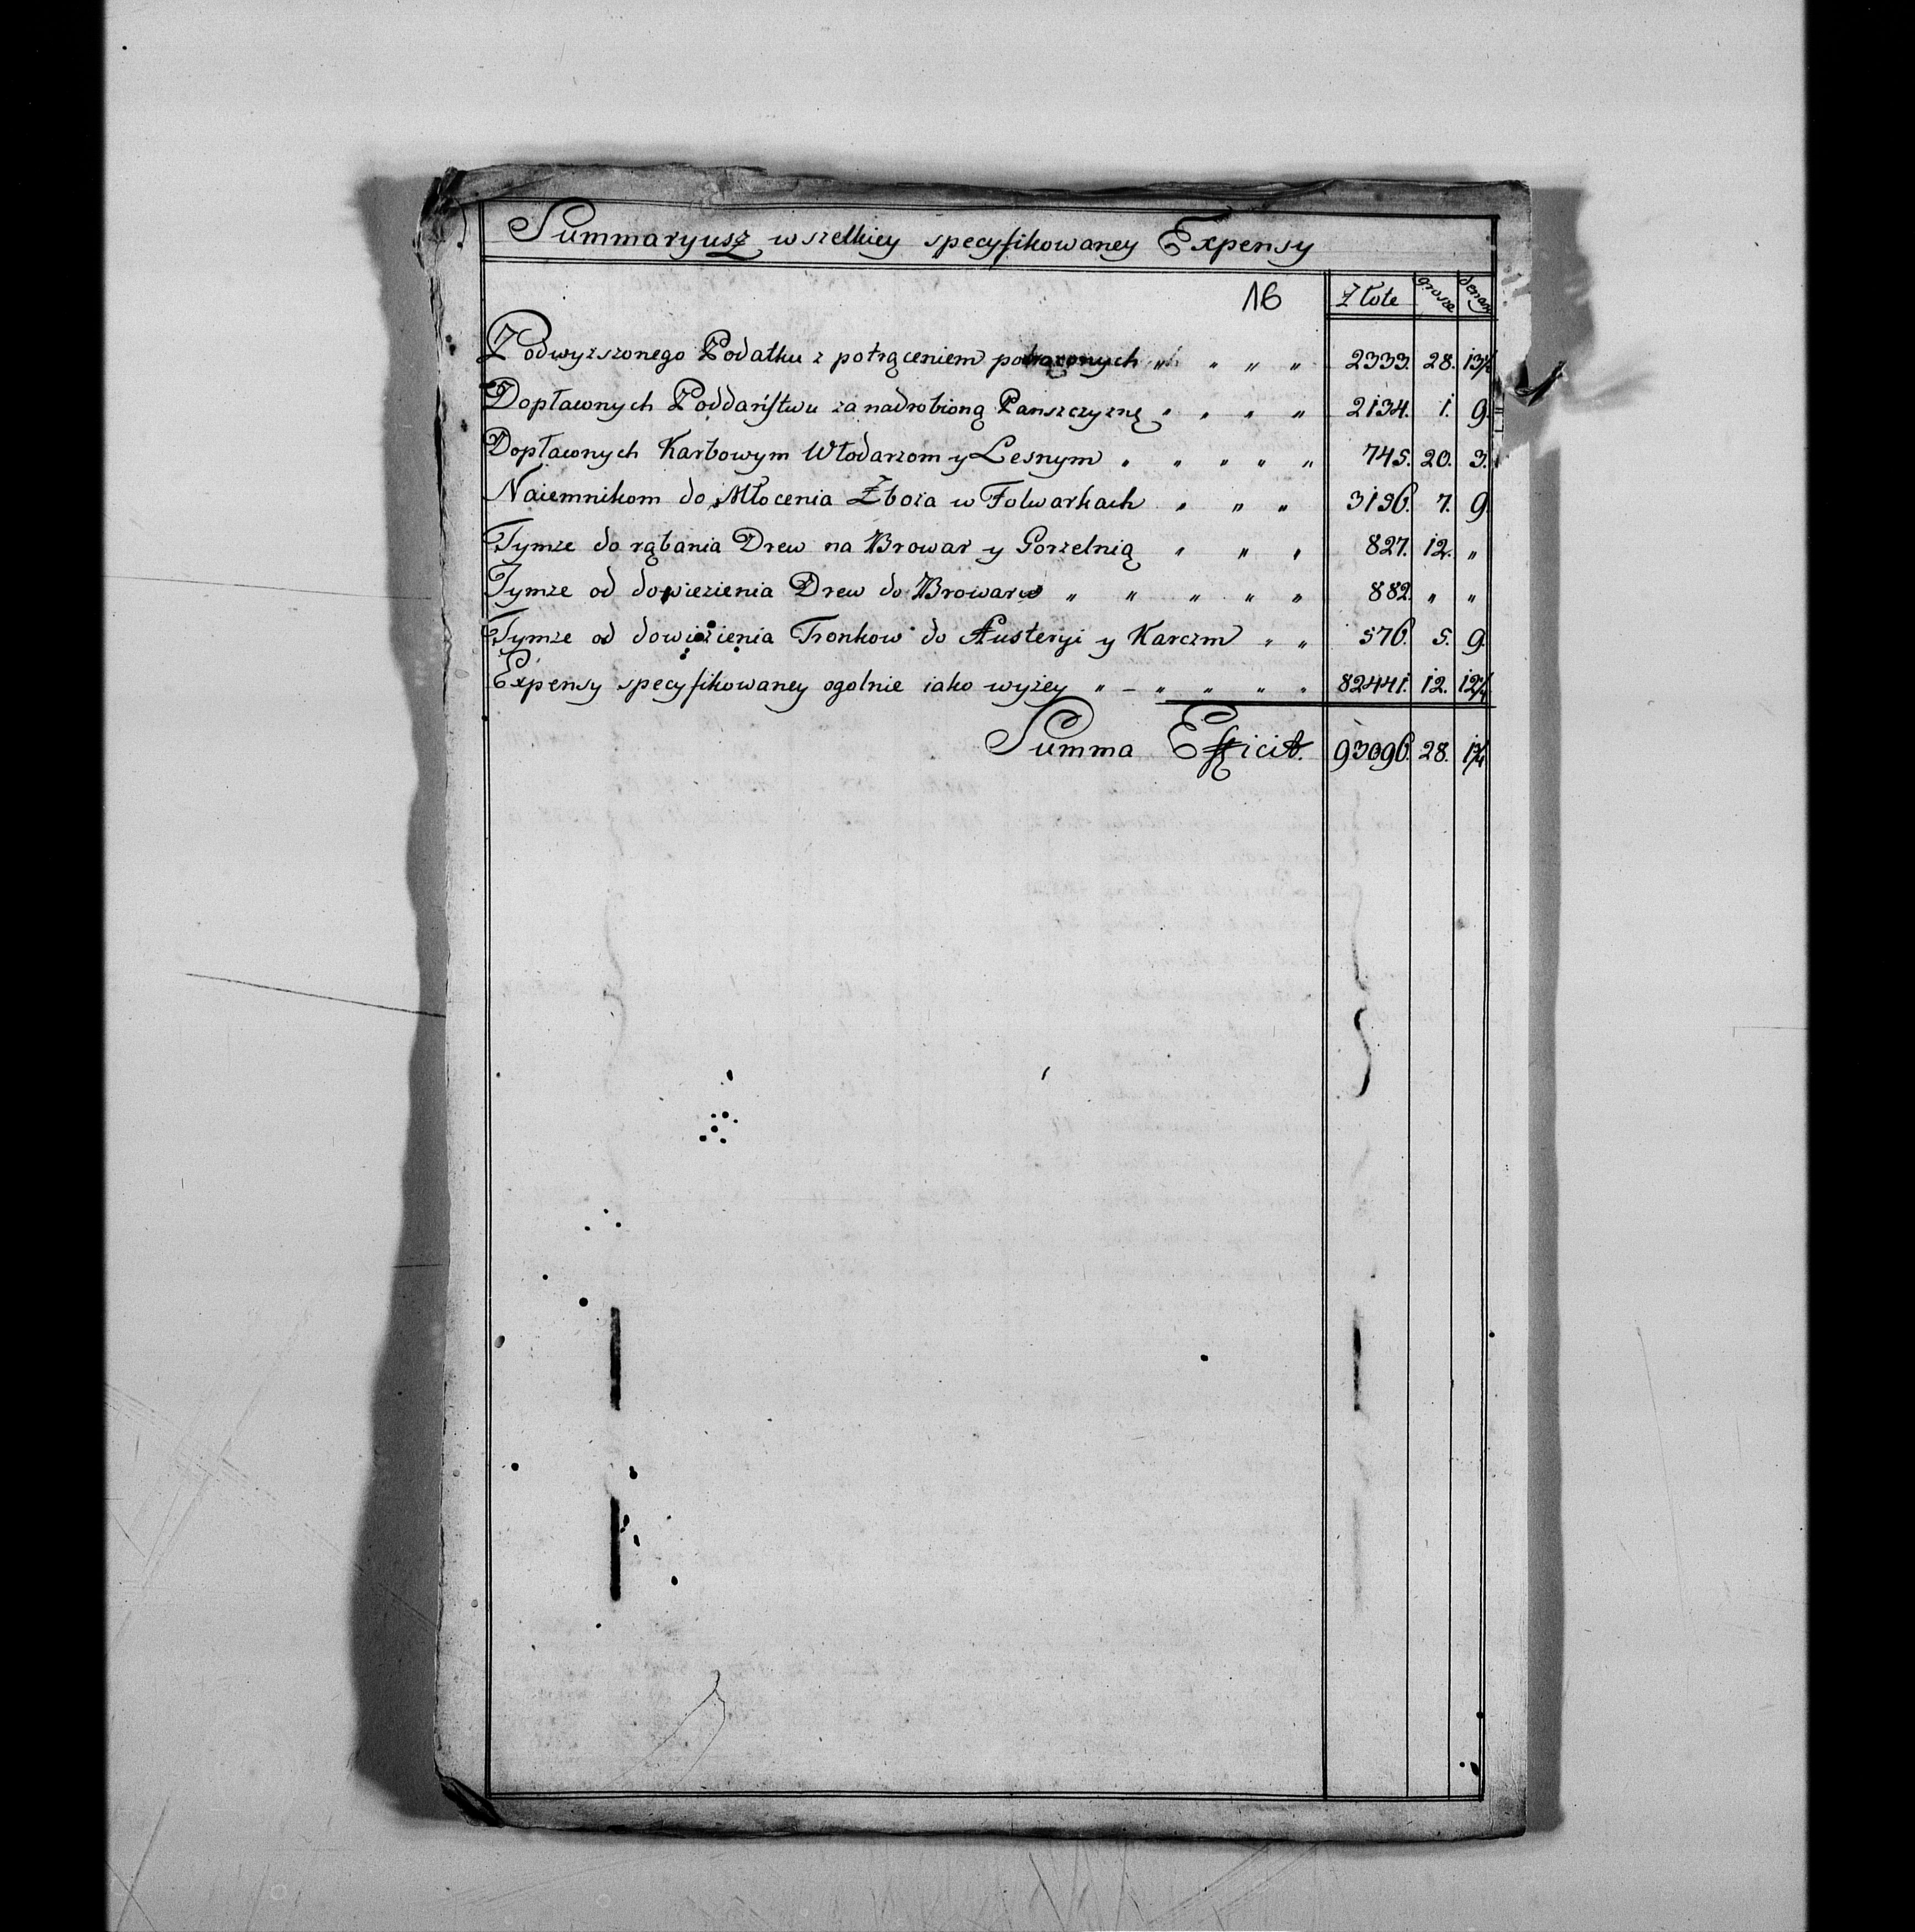 Summaryusz wszelkiey specyfikowaney Expensy
16 Złote grosze denar
Podwyższonego Podatku z potrąceniem potrąconych " " " " 2333. 28. 13½
Dopłaconych Poddaństwu za nadrobioną Panszczyznę " " " " 2134. 1. 9.
Dopłaconych Karbowym Włodarzom y Lesnym " " " " " 745. 20. 3.
Naiemnikom do Młocenia Zboża w Folwarkach " " " 3156. 7. 9.
Tymże do rąbania Drew na Browar y Gorzelnią " " " 827. 12. "
Tymże od dowiezienia Drew do Browaru " " " " " 882. " "
Tymże od dowiezienia Tronkow do Austeryi y Karczm " " 576. 5. 9.
Expensy specyfikowaney ogolnie iako wyżey " – " " " " 82441. 12. 12¼
Summa Efficit. 93096. 28. 1¾